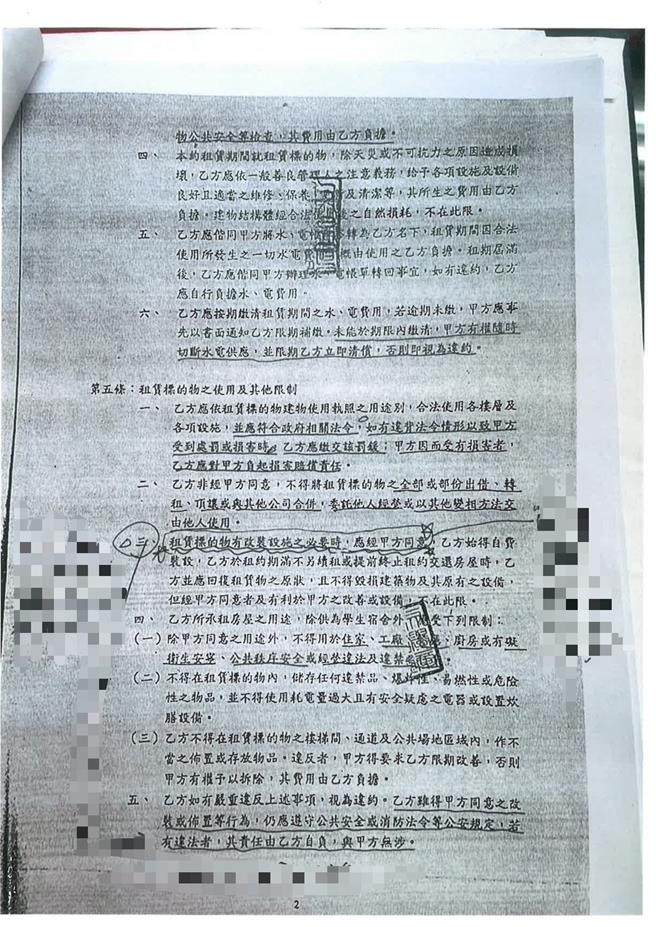 物公共安全等檢查，其費用由乙方負擔。
四、 本約租賃期間就租賃標的物，除天災或不可抗力之原因造成損
壞，乙方應依一般善良管理人之注意義務，給予各項設施及設備
良好且適當之維修、保養、及清潔等，其所生之費用由乙方
負擔。建物結構體經合法使用後之自然損耗，不在此限。
五、 乙方應偕同甲方將水、電帳單轉為乙方名下，租賃期間因合法
使用所發生之一切水電費概由使用之乙方負擔。租期屆滿
後，乙方應偕同甲方辦理水、電帳單轉回事宜，如有違約，乙方
應自行負擔水、電費用。
六、 乙方應按期繳清租賃期間之水、電費用，若逾期未繳，甲方應事
先以書面通知乙方限期補繳。未能於期限內繳清，甲方有權隨時
切斷水電供應，並限期乙方立即清償，否則即視為違約。
第五條：租賃標的物之使用及其他限制
一、 乙方應依租賃標的物建物使用執照之用途別，合法使用各樓層及
各項設施，並應符合政府相關法令，如有違背法令情形以致甲方
受到處罰或損害時，乙方應繳交該罰鍰；甲方因而受有損害者，
乙方應對甲方負起損害賠償責任。
二、 乙方非經甲方同意，不得將租賃標的物之全部或部份出借、轉
租、頂讓或與其他公司合併，委託他人經營或以其他變相方法交
由他人使用。
三、 租賃標的物有改裝設施之必要時，應經甲方同意，乙方始得自費
裝設，乙方於租約期滿不另續租或提前終止租約交還房屋時，乙
方並應回復租賃物之原狀，且不得毀損建築物及其原有之設備，
但經甲方同意者及有利於甲方之改善或設備，不在此限。
四、 乙方所承租房屋之用途，除供為學生宿舍外，應受下列限制：
(一) 除甲方同意之用途外，不得用於住家、工廠、廚房或有礙
衛生安寧、公共秩序安全或經營違法及違禁
(二) 不得在租賃標的物內，儲存任何違禁品、爆炸性、易燃性或危險
性之物品，並不得使用耗電量過大且有安全疑慮之電器或設置炊
膳設備。
(三) 乙方不得在租賃標的物之樓梯間、通道及公共場地區域內，作不
當之佈置或存放物品。違反者，甲方得要求乙方限期改善，否則
甲方有權予以拆除，其費用由乙方負擔。
五、 乙方如有嚴重違反上述事項，視為違約。乙方雖得甲方同意之改
裝或佈置等行為，仍應遵守公共安全或消防法令等公安規定，若
有違法者，其責任由乙方自負，與甲方無涉。
2